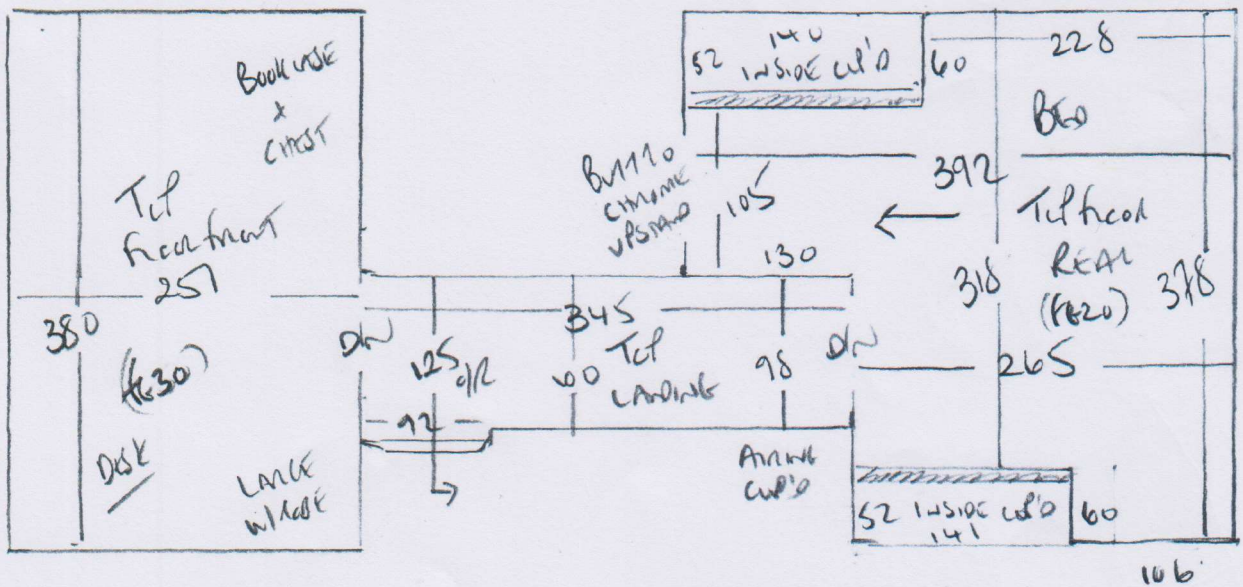 BOOKCASE
&
CHEST
TOP
FLOOR FRONT
257
380
DESK
LARGE
W/ROBE
52
140
INSIDE CUP'D
60
228
BED
392
105
CHROME
UPSTAND
130
TOP FLOOR
REAR
318
378
265
D/W
345
125
92
TOP
LANDING
98
D/W
AIRING
CUP'D
52 INSIDE CUP'D
141
60
106